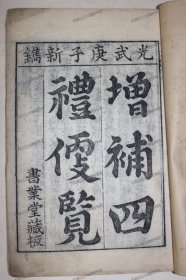 光武庚子新鐫
增補四
禮便覧
書業堂藏板